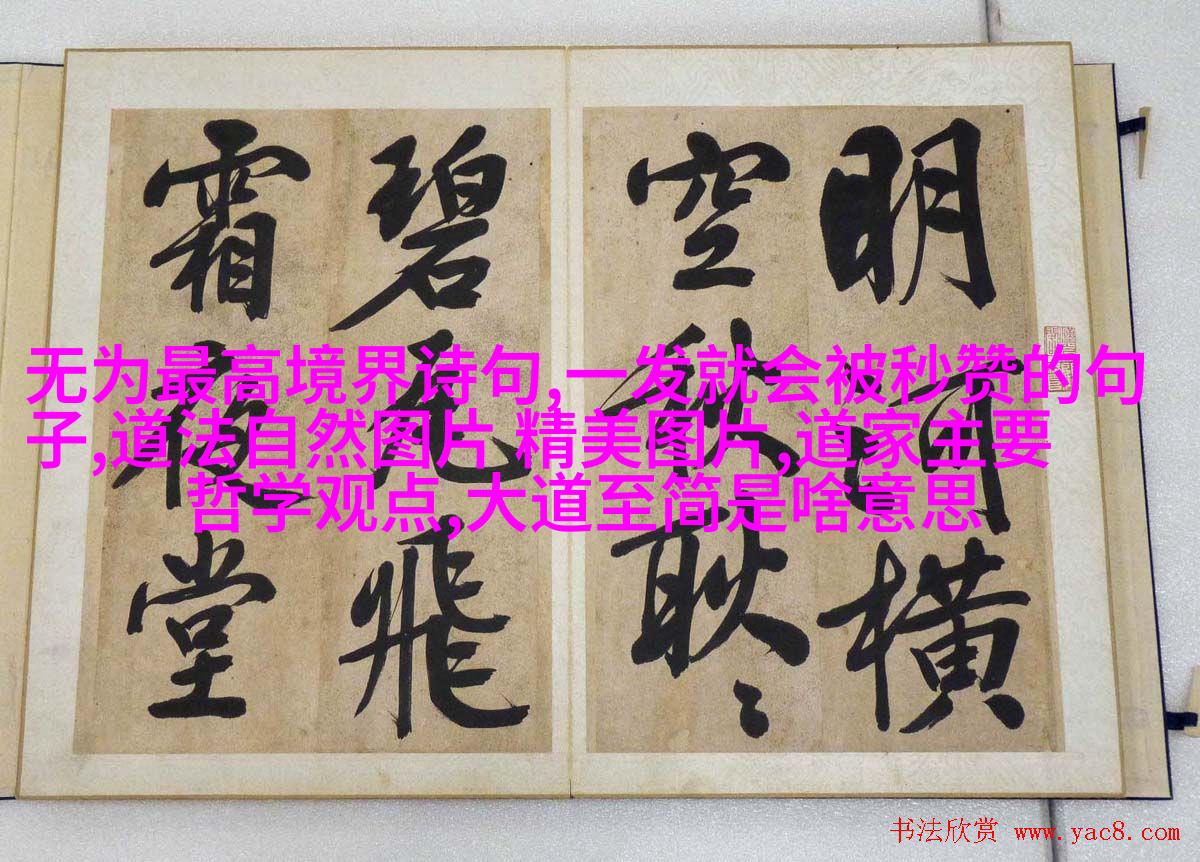 明河橫
空秋耿〻
碧瓦飛
霜夜堂
无为最高境界诗句,一发就会被秒赞的句
子,道法自然图片 精美图片,道家主要
哲学观点,大道至简是啥意思
书法欣赏 www.yac8.com